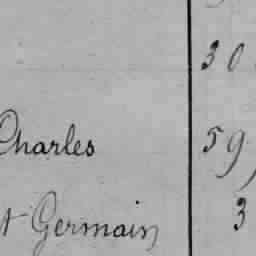 30
Charles 59,
t Germain 3